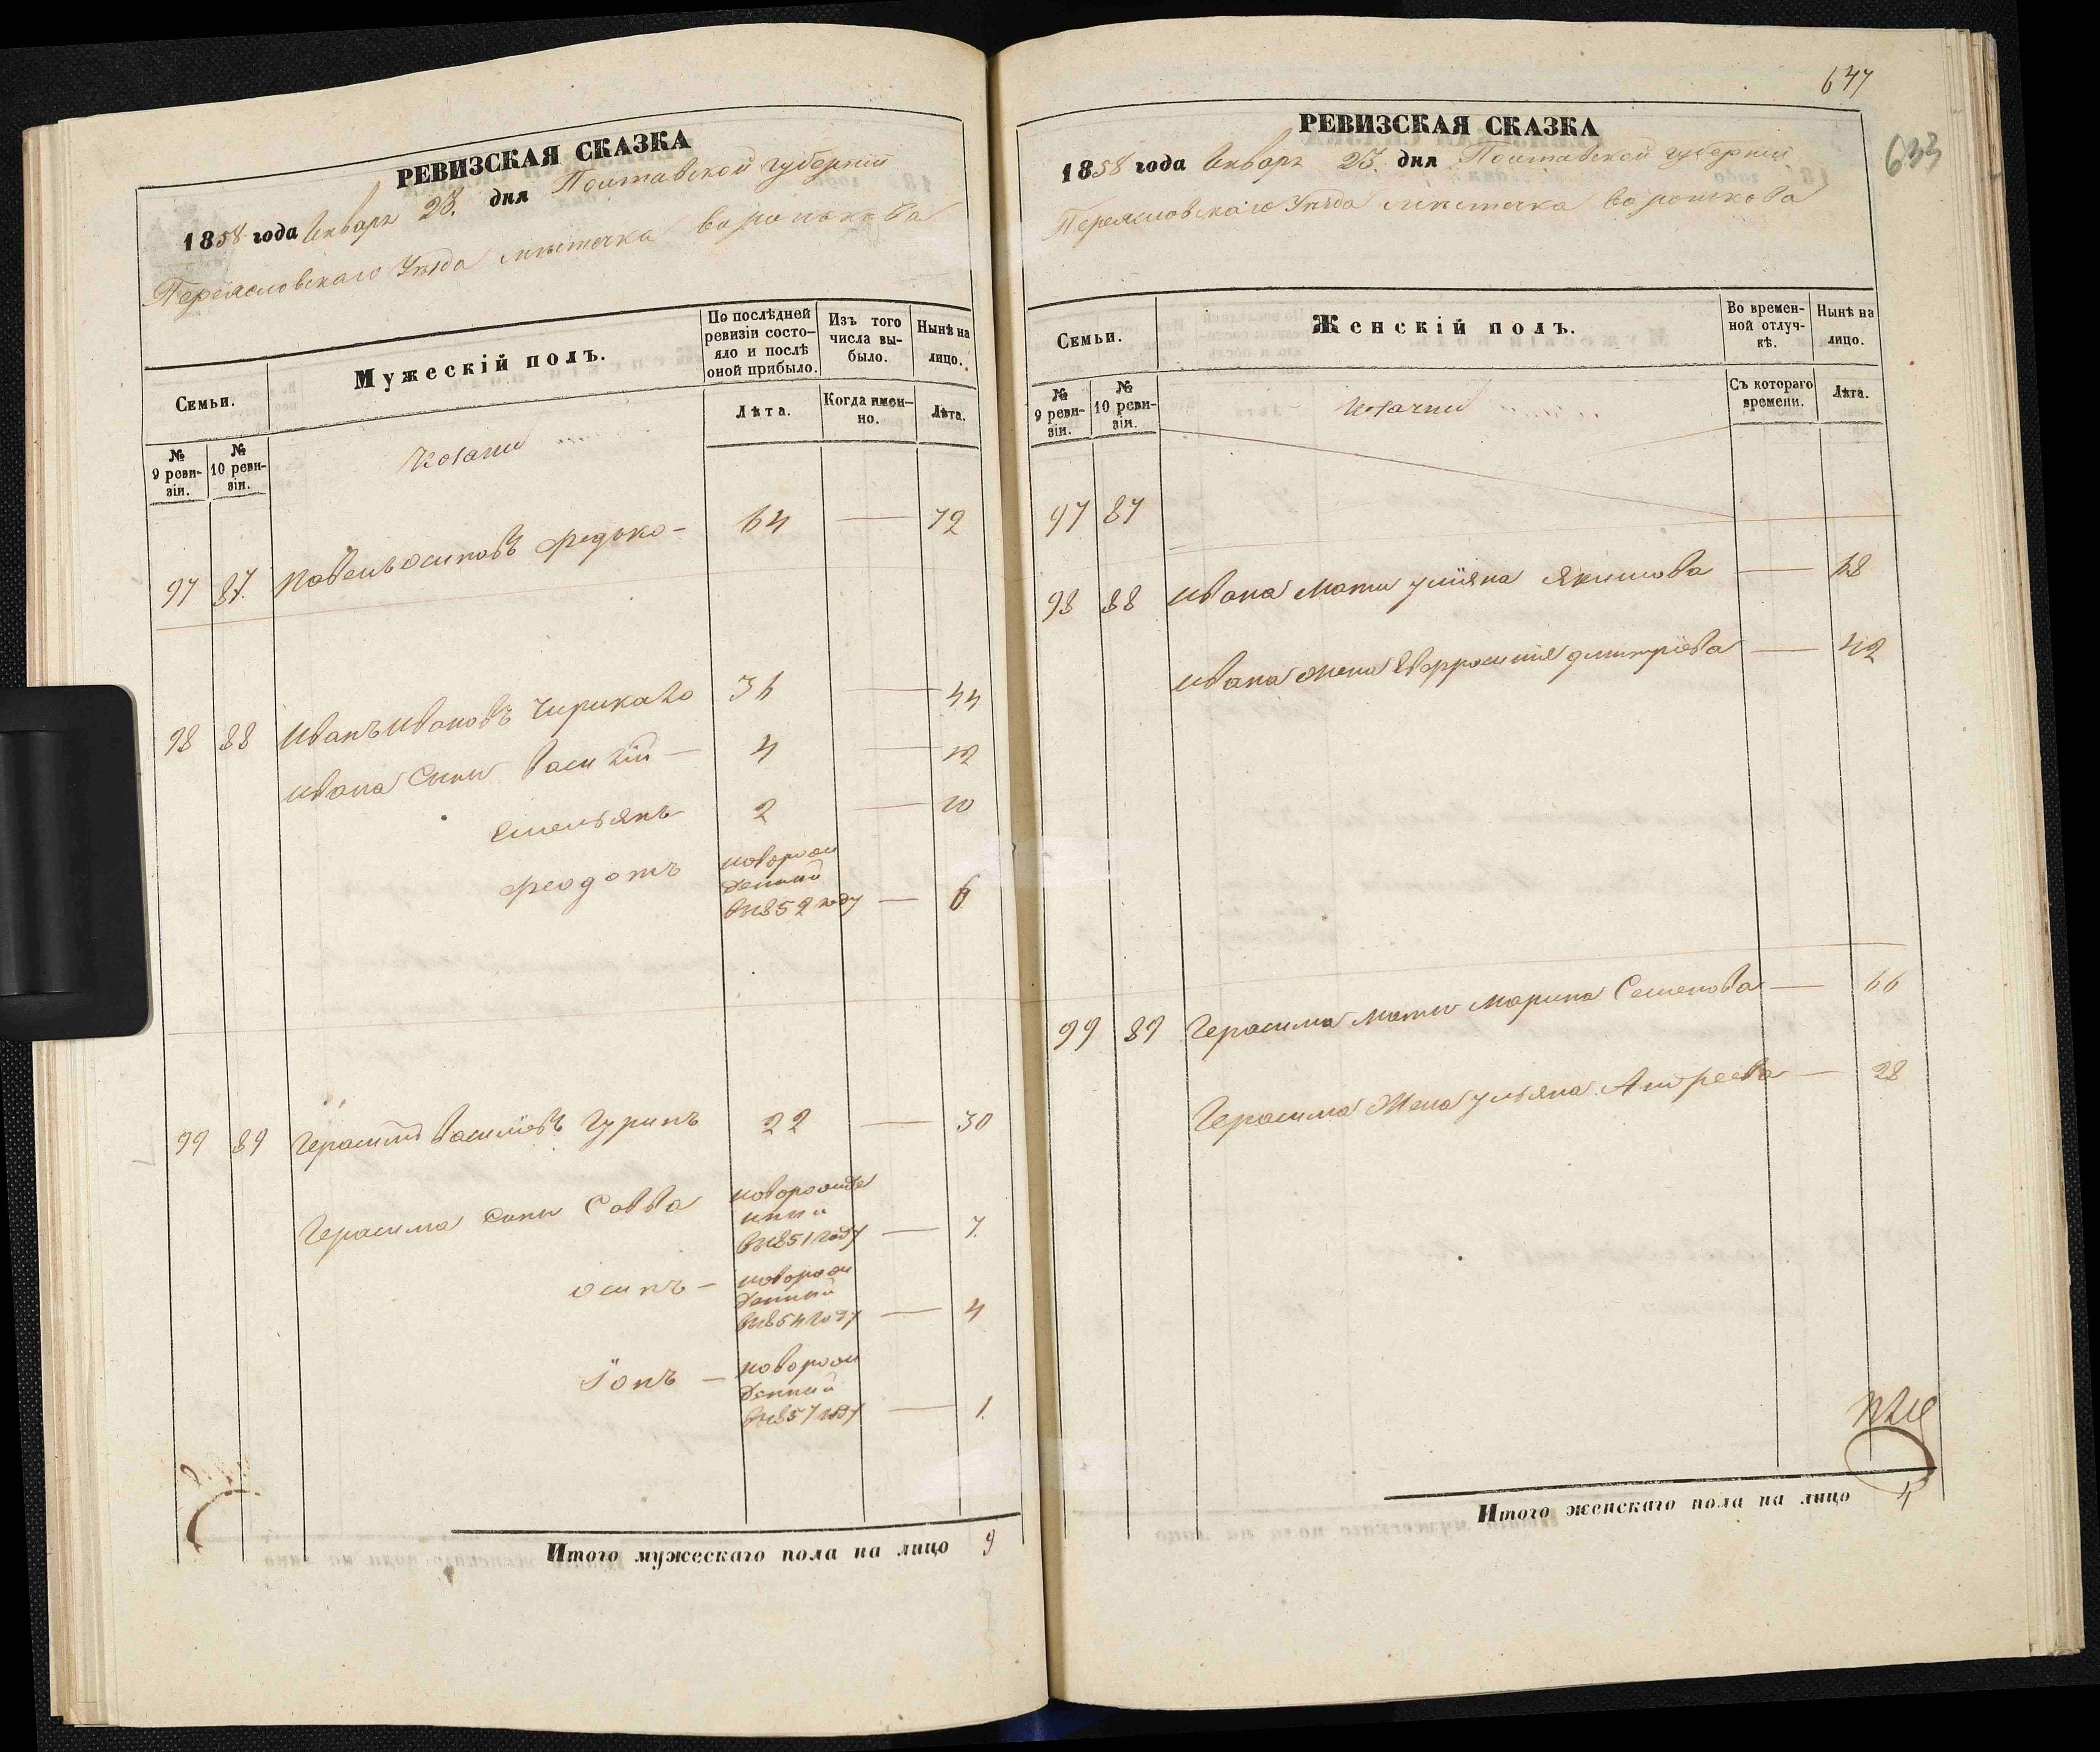 РЕВИЗСКАЯ СКАЗКА
1858 года Январь 23. дня Полтавской губерніи
Переясловскаго Уѣзда мѣстечка Воронькова
Семьи.
Мужескій полъ.
По послѣдней ревизіи состо-
яло и послѣ
оной прибыло.
Изъ того
числа вы-
было.
Нынѣ на
лицо.
№
9 реви-
зіи.
№
10 реви-
зіи.
Козаки
Лѣта.
Когда имен-
но.
Лѣта.
97 87. Павелъ Осиповъ Федько — 64 — 72
98 88 Иванъ Ивановъ Чирикало 36 — 44
Ивана Сыны Василій — 4 — 12
Емельянъ 2 — 10
Феодотъ
новорож
денный
въ 1852 году — 6
99 89 Герасимъ Василіевъ Гуринъ 22 — 30
Герасима сыны Савва
новорожде
нный
въ 1851 году — 7.
Осипъ —
новорож
денный
въ 1854 году — 4
Іонъ —
новорож
денный
въ 1857 году — 1.
Итого мужескаго пола на лицо 9
647
633
РЕВИЗСКАЯ СКАЗКА
1858 года Январь 23. дня Полтавской губерніи
Переясловскаго Уѣзда мѣстечка Воронькова
Семьи.
Женскій полъ.
Во времен-
ной отлуч-
кѣ.
Нынѣ на
лицо.
№
9 реви-
зіи.
№
10 реви-
зіи.
Козачки
Съ котораго
времени.
Лѣта.
97 87
98 88 Ивана Мати Уліяна Якимова — 68
Ивана жена Евфросинія Дмитріева — 42
99 89 Герасима Мати Марина Семенова — 66
Герасима Жена Ульяна Андреева — 28
Итого женскаго пола на лицо 4